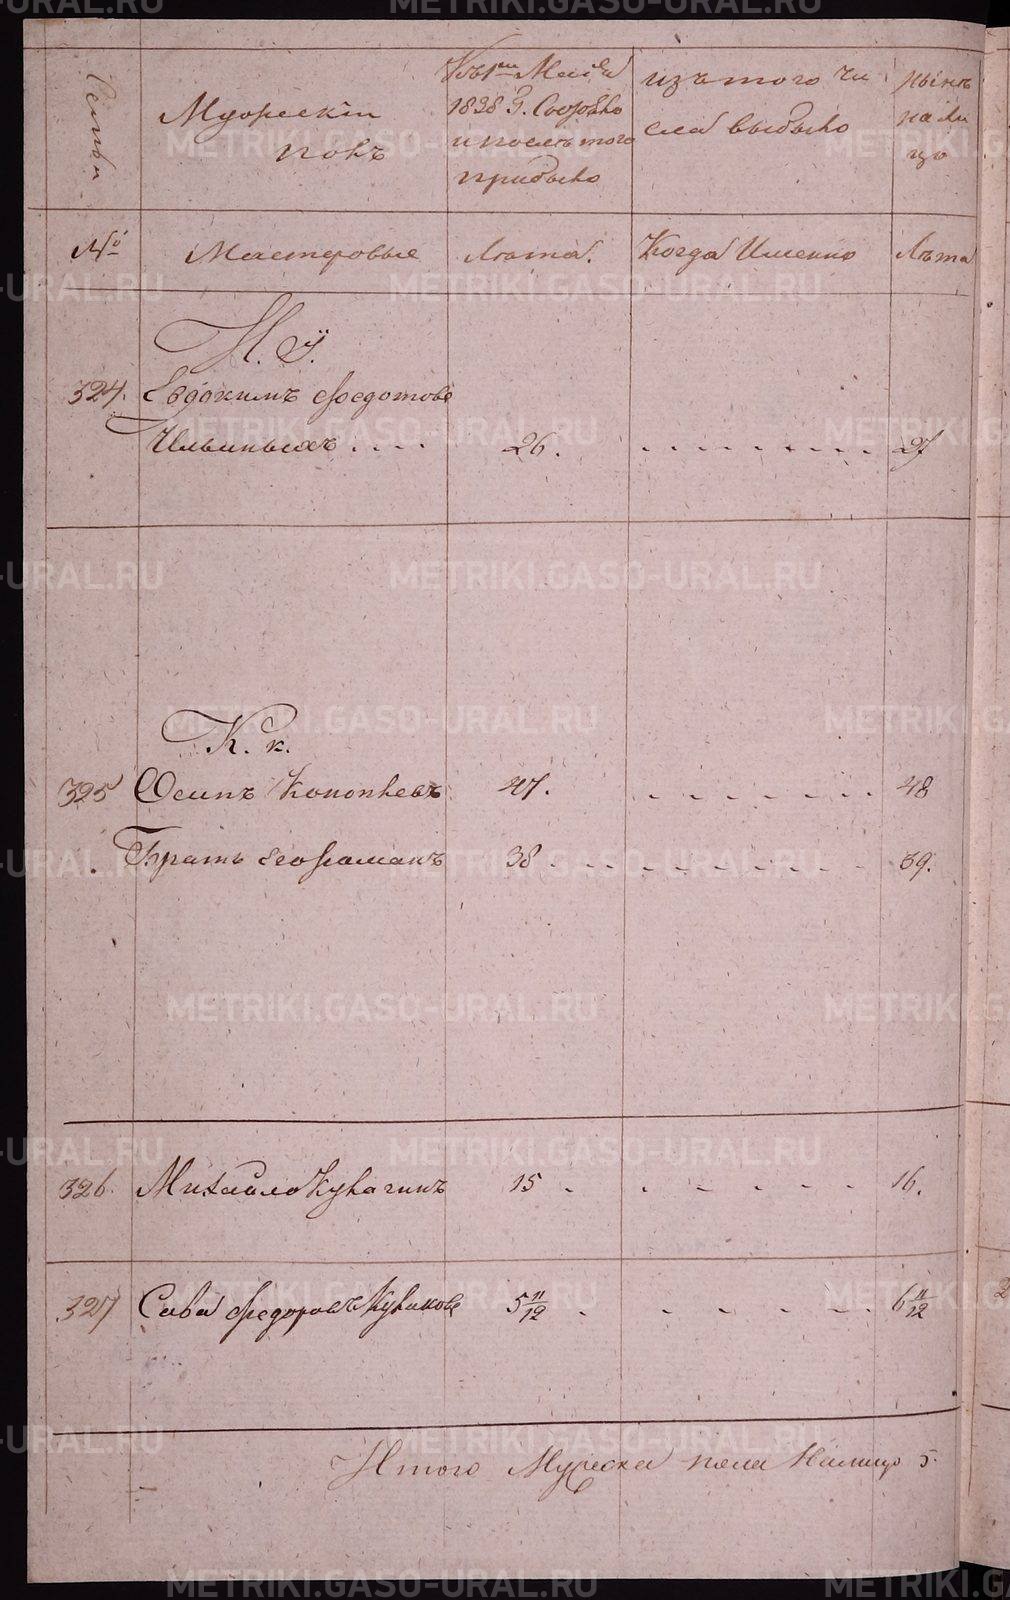 Семьи
Мужескій
полъ
Къ 1му Маія
1838 г. Состояло
и послѣ того
прибыло
изъ того чи
сла выбыло
Нынѣ
на ли
цо
№
Мастеровые
Лѣта.
Когда Именно
Лѣта
И. У.
324. Евдокимъ Федотовъ
Ильиныхъ . . . . 26. . . . . . . . . 27
К. к.
325 Осипъ Кононовъ 47. . . . . . . . 48
Братъ его Романъ 38 . . . . . . . . 39.
326. Михайло Кулагинъ 15 . . . . . . . 16.
327 Сава Федоровъ Куликовъ 5 11/12 . . . . . . . 6 11/12
Итого Мужеска пола Налицо 5.
METRIKI.GASO-URAL.RU